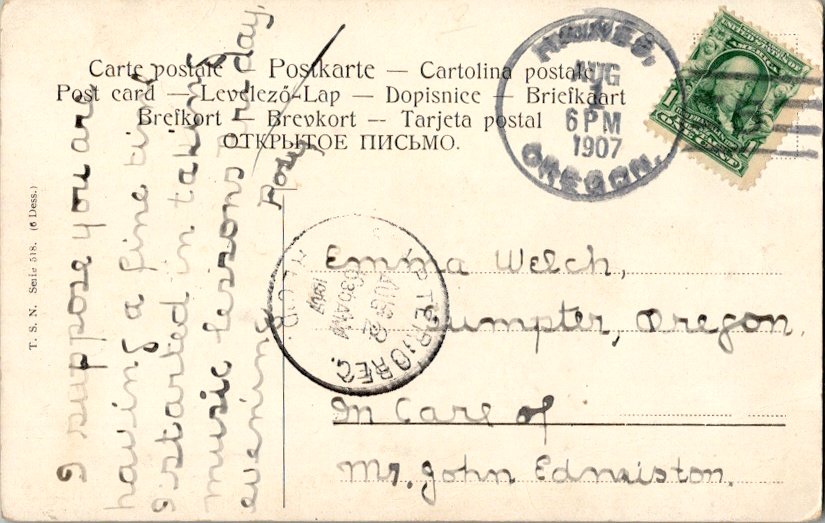 Carte postale — Postkarte — Cartolina postale
Post card — Levelező-Lap — Dopisnice — Briefkaart
Brefkort — Brevkort — Tarjeta postal
ОТКРЫТОЕ ПИСЬМО.
HAINES,
AUG
1
6 PM
1907
OREGON.
T. S. N. Serie 518. (6 Dess.)
I suppose you are
having a fine time
I started in taking
music lessons
evening
day,
SUMPTER, OREG.
AUG 2
630AM
1907
REC'D
Emma Welch,
Sumpter, Oregon.
In Care of
Mr. John Edmiston.